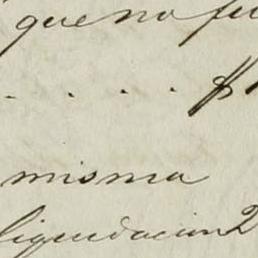 que no fu
. . . . $
misma
liquidacion 2